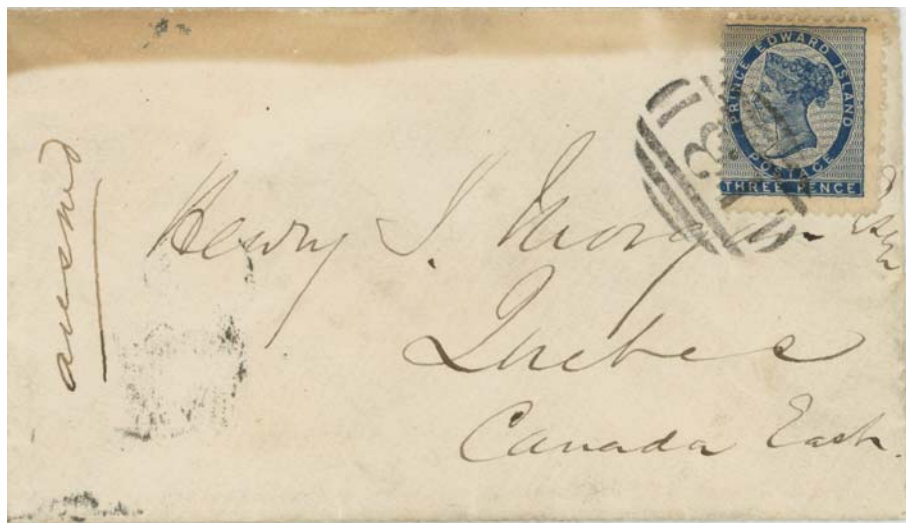 PRINCE EDWARD ISLAND
POSTAGE
THREE PENCE
Henry J. Morgan Esq
Quebec
Canada East.